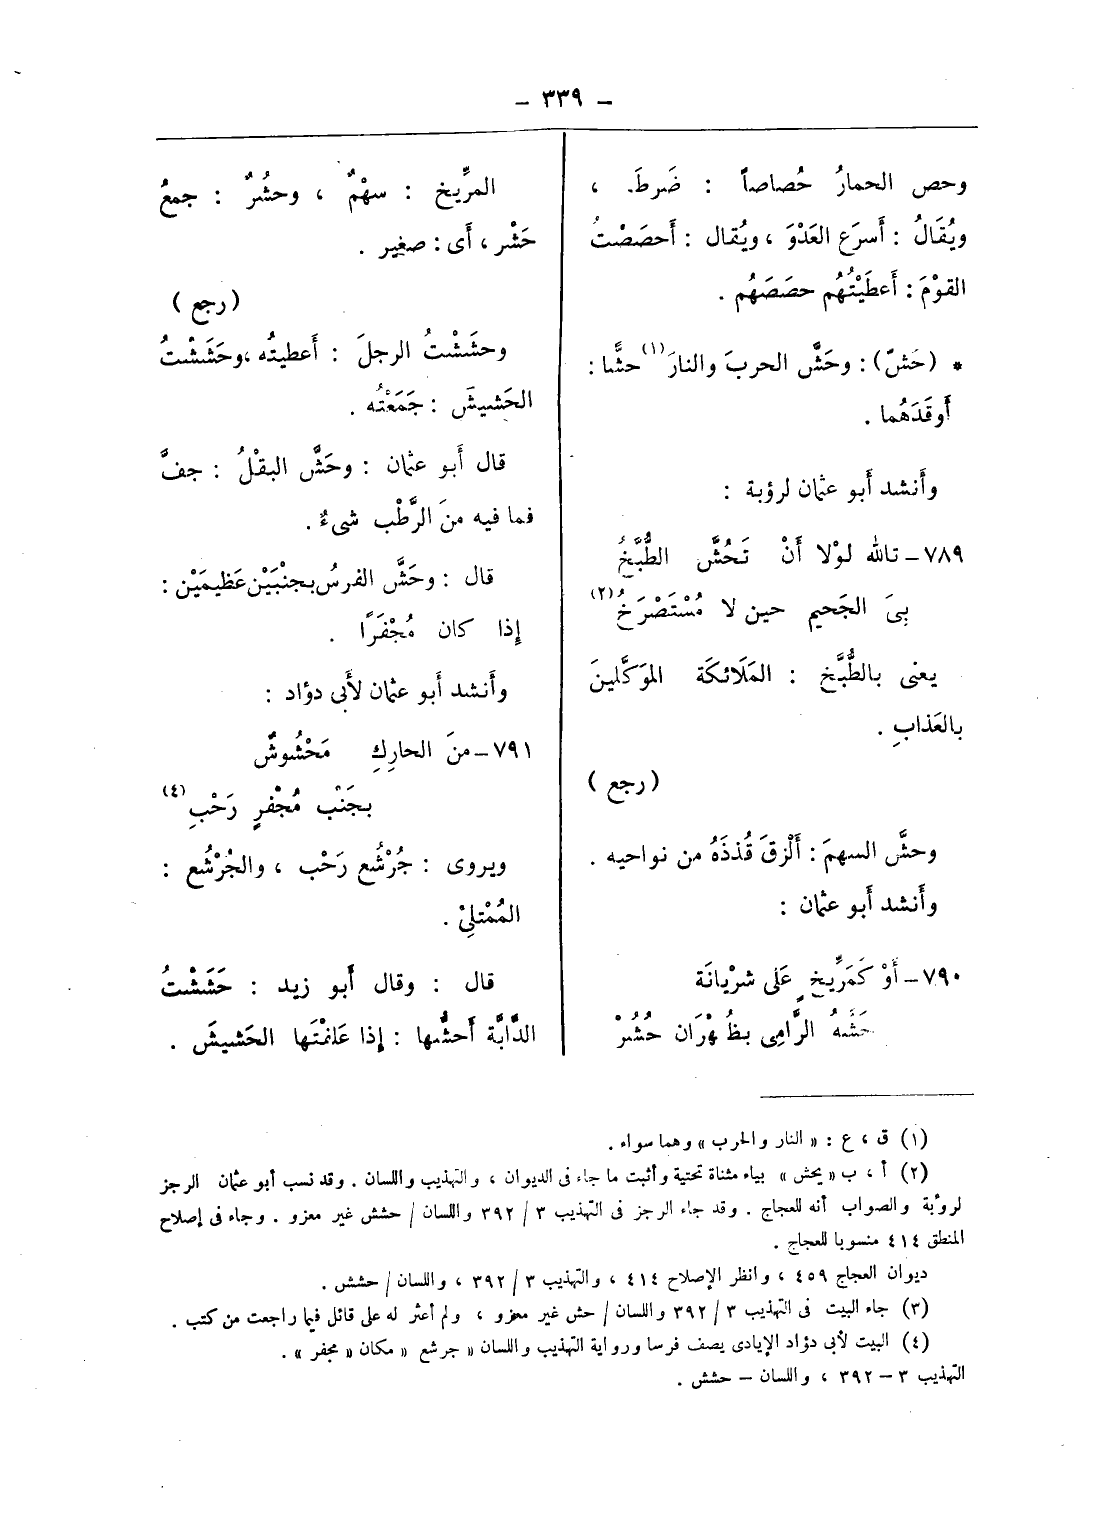 – ٣٣٩ –
وحص الحمارُ حُصاصاً : ضَرطَ ،
ويُقَالُ : أَسرَع العَدْوَ ، ويُقال : أَحصَصْتُ
القوْمَ : أَعطَيْتُهُم حصَصَهُم .
* (حَشّ) : وحَشَّ الحربَ والنارَ(١) حشًّا :
أَوقَدَهُما .
وأَنشد أَبو عثمان لرؤبة :
٧٨٩ – تالله لوْلا أَنْ تَحُشَّ الطُّبَّخُ
بِىَ الجَحيم حين لا مُسْتَصْرَخُ(٢)
يعنى بالطُّبَّخ : المَلَائكَة الموَكَّلينَ
بالعَذابِ .
(رجع)
وحشَّ السهمَ : أَلْزقَ قُذذَهُ من نواحيه .
وأَنشد أَبو عثمان :
٧٩٠ – أَوْ كَمَرِّيخٍ عَلَى شرْيانَة
حَشَّهُ الرَّامِى بظُهْرَان حُشُرْ
المرِّيخ : سهْمٌ ، وحشُرٌ : جمعُ
حَشْر ، أَى : صغير .
(رجع)
وحشَشْتُ الرجلَ : أَعطيتُه ، وحَشَشْتُ
الحَشيشَ : جَمَعْتُه .
قال أَبو عثمان : وحَشَّ البقْلُ : جفَّ
فما فيه منَ الرَّطْب شىءٌ .
قال : وحَشَّ الفرسُ بجنْبَيْن عَظيمَيْن :
إِذا كان مُجْفَرًا .
وأَنشد أَبو عثمان لأَبى دؤاد :
٧٩١ – منَ الحارِكِ مَحْشُوشٌ
بجَنْب مُجْفرٍ رَحْبِ(٤)
ويروى : جُرْشُع رَحْب ، والجُرْشُع :
المُمْتلِئْ .
قال : وقال أَبو زيد : حَشَشْتُ
الدَّابَّة أَحشُّها : إِذا عَلفْتَها الحَشيشَ .
(١) ق ، ع : « النار والحرب » وهما سواء .
(٢) أ ، ب « يحش » بياء مثناة تحتية وأثبت ما جاء فى الديوان ، والتهذيب واللسان . وقد نسب أبو عثمان الرجز
لرؤبة والصواب أنه للعجاج . وقد جاء الرجز فى التهذيب ٣ / ٣٩٢ واللسان / حشش غير معزو . وجاء فى إصلاح
المنطق ٤١٤ منسوبا للعجاج .
ديوان العجاج ٤٥٩ ، وانظر الإصلاح ٤١٤ ، والتهذيب ٣ / ٣٩٢ ، واللسان / حشش .
(٣) جاء البيت فى التهذيب ٣ / ٣٩٢ واللسان / حش غير معزو ، ولم أعثر له على قائل فيما راجعت من كتب .
(٤) البيت لأبى دؤاد الإيادى يصف فرسا ورواية التهذيب واللسان « جرشع « مكان « مجفر » .
التهذيب ٣ – ٣٩٢ ، واللسان – حشش .